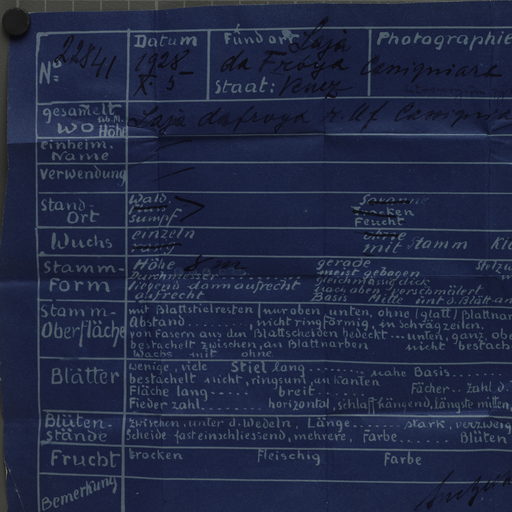 Datum Fundort Laja Photographie
No: 22841 1928 da Froya Cenigniara
X. 5 Staat: Venez
gesammelt Laja da froya r. Uf
wo sub.M. Höhe
einheim. Name
Verwendung
Stand-Ort Wald. Savanne
Sumpf trocken
Feucht
Wuchs einzeln ohne
mit Stamm
Stamm-Form Höhe 8 m gerade
Durchmesser.......... meist gebogen
liegend dann aufrecht gleichmässig dick
aufrecht nach oben verschmälert
Basis Mitte unt. d. Blätt
Stamm-Oberfläche mit Blattstielresten nur oben, unten, ohne (glatt)
Abstand......., nicht ringförmig, in schrägzeilen.
von Fasern aus den Blattscheiden bedeckt... unten, ganz
bestachelt zwischen, an Blattnarben nicht
Wachs mit ohne
Blätter wenige, viele Stiel lang........ nahe Basis........
bestachelt nicht, ringsum, an Kanten Fächer.. zahl d.
Fläche lang...... breit........
Fieder zahl........ horizontal, schlaff hängend, längste mitten,
Blüten-stände zwischen, unter d. Wedeln, Länge...... stark, verzweig
Scheide fast einschliessend, mehrere, Farbe...... Blüten
Frucht trocken Fleischig Farbe
Bemerkung